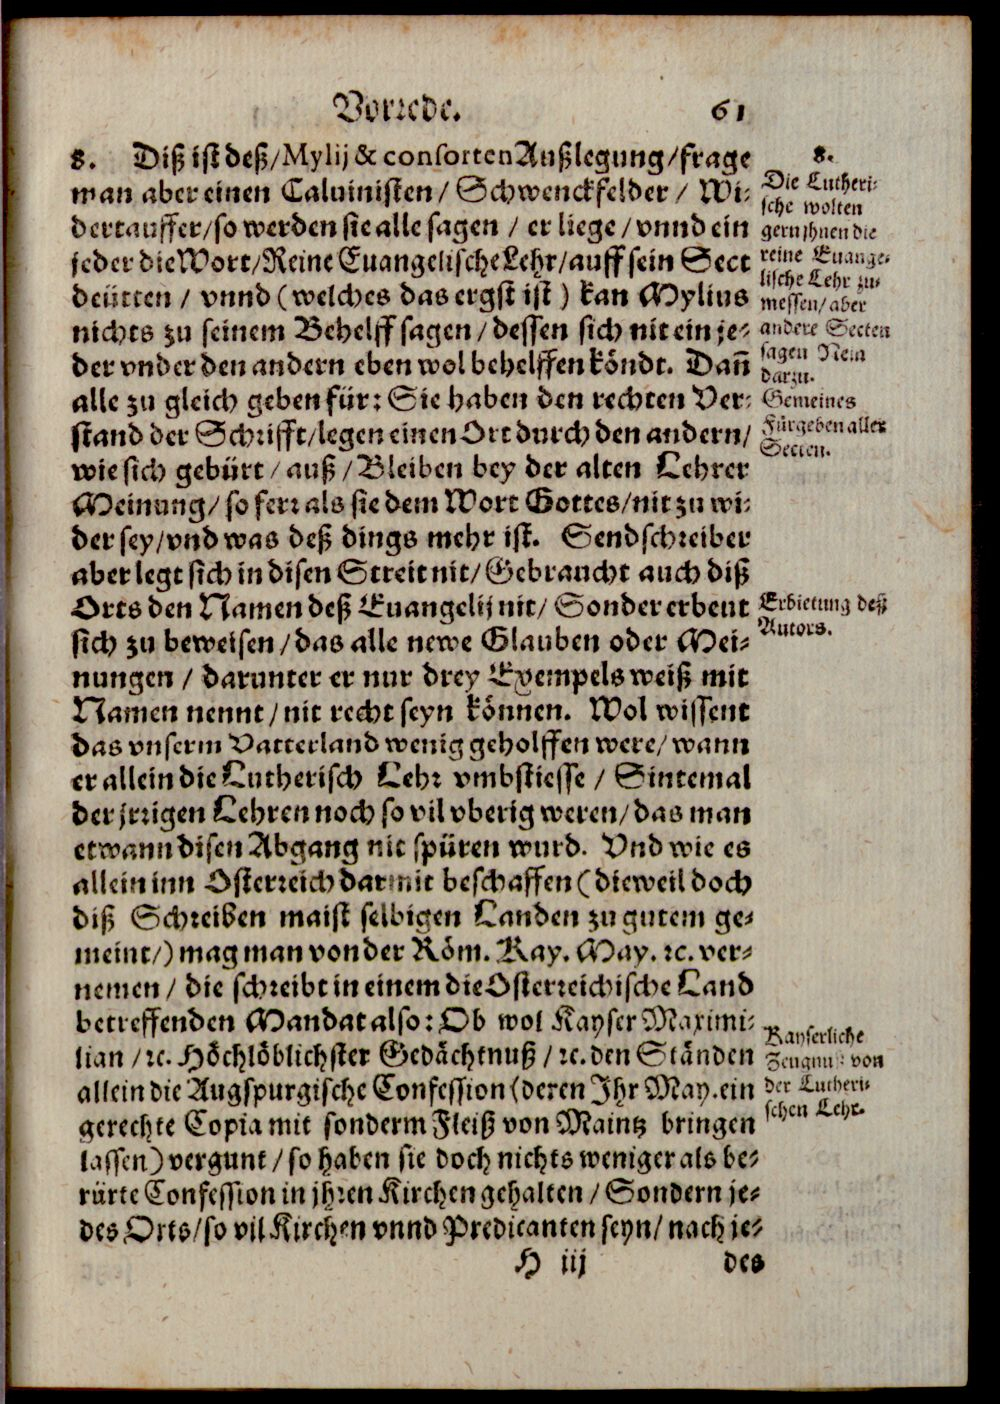 Vorrede. 61
8. Diß ist deß/Mylij & consorten Außlegung/frage
man aber einen Caluinisten/ Schwenckfelder / Wi-
dertauffer/so werden sie alle sagen / er liege / vnnd ein
jeder die Wort/Reine Euangelische Lehr/auff sein Sect
deütten / vnnd (welches das ergst ist) kan Mylius
nichts zu seinem Behelff sagen/dessen sich nit ein je-
der vnder den andern eben wol behelffen köndt. Dañ
alle zu gleich geben für: Sie haben den rechten Ver-
stand der Schrifft/legen einen Ort durch den andern/
wie sich gebürt / auß / Bleiben bey der alten Lehrer
Meinung/ so ferr als sie dem Wort Gottes/nit zu wi-
der sey/vnd was deß dings mehr ist. Sendschreiber
aber legt sich in disen Streit nit/Gebraucht auch diß
Orts den Namen deß Euangelij nit/ Sonder erbeut
sich zu beweisen/das alle newe Glauben oder Mei-
nungen / darunter er nur drey Exempels weiß mit
Namen nennt/nit recht seyn können. Wol wissent
das vnserm Vatterland wenig geholffen were/wann
er allein die Lutherisch Lehr vmbstiesse / Sintemal
der jrrigen Lehren noch so vil vberig weren/das man
etwann disen Abgang nit spüren wurd. Vnd wie es
allein inn Osterreich darmit beschaffen (dieweil doch
diß Schreiben maist selbigen Landen zu gutem ge-
meint/) mag man von der Röm. Kay. May. ꝛc. ver-
nemen / die schreibt in einem die Osterreichische Land
betreffenden Mandat also: Ob wol Kayser Maximi-
lian /ꝛc. Höchlöblichster Gedächtnuß /ꝛc. den Ständen
allein die Augspurgische Confession (deren Jhr May. ein
gerechte Copia mit sonderm Fleiß von Maintz bringen
lassen) vergunt / so haben sie doch nichts weniger als be-
rürte Confession in jhren Kirchen gehalten / Sondern je-
des Orts/so vil Kirchen vnnd Predicanten seyn/ nach je-
H iij des
8.
Die Lutheri-
sche wolten
gern jhnen die
reine Euange-
lische Lehr zu-
messen/aber
andere Secten
sagen Nein
darzu.
Gemeines
Fürgeben aller
Secten.
Erbietung deß
Autors.
Kayserliche
Zeugnuß von
der Lutheri-
schen Lehr.